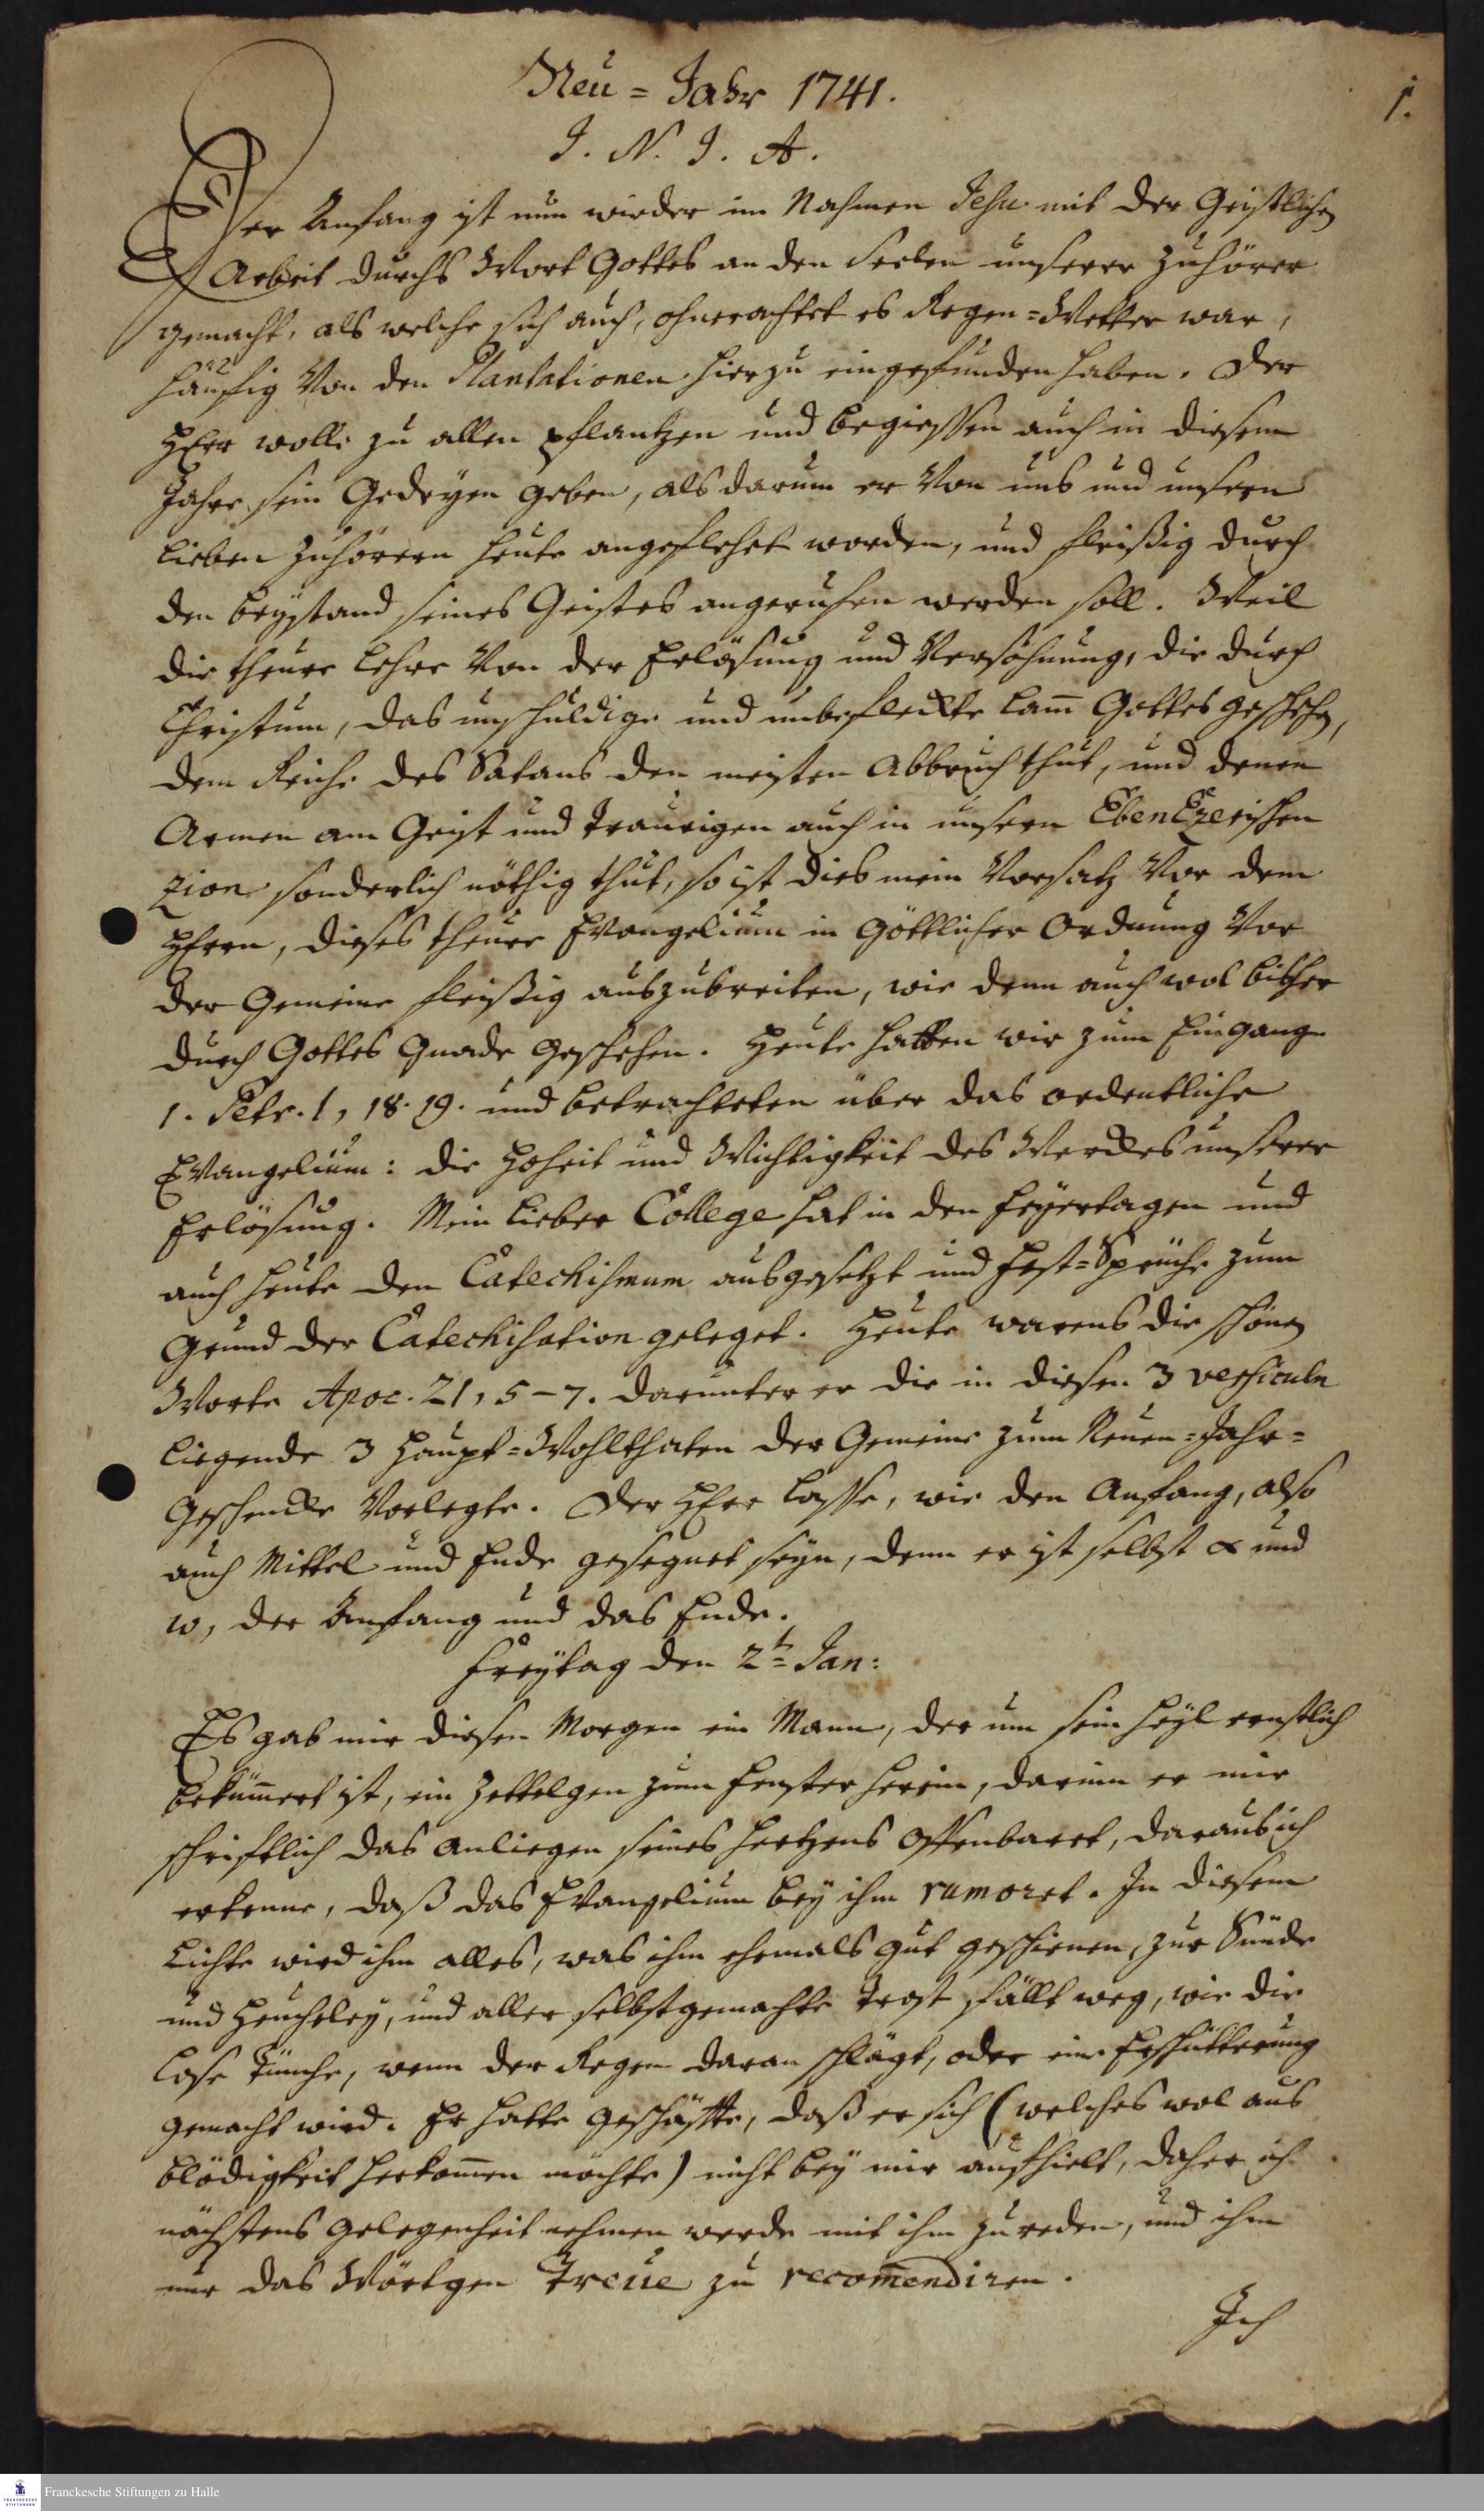 Neu = Jahr 1741.
1.
J. N. J. A.
Der Anfang ist nun wieder im Nahmen Jesu mit der Geistlichen
Arbeit durchs Wort Gottes an den Seelen unserer Zuhörer
gemacht, als welche sich auch, ohnerachtet es Regen=Wetter war,
häuffig von den Plantationen hierzu eingefunden haben. Der
HErr wolle zu allen pflantzen und begiessen auch in diesem
Jahre sein Gedeyen geben, als darum er von uns und unsern
lieben Zuhörern heute angeflehet worden, und fleißig durch
den beystand seines Geistes angerufen werden soll. Weil
die theure Lehre von der Erlösung und Versöhnung, die durch
Christum, das unschuldige und unbefleckte Lam̅ Gottes geschehen,
dem Reiche des Satans den meisten Abbruch thut, und denen
Armen am Geist und traurigen auch in unsern EbenEzerischen
Zion sonderlich nöthig thut, so ist dies mein Vorsatz vor dem
HErrn, dieses theure Evangelium in Göttlicher Ordnung vor
der Gemeine fleißig auszubreiten, wie denn auch wol bisher
durch Gottes Gnade geschehen. Heute hatten wir zum Eingange
1. Petr. 1, 18. 19. und betrachteten über das ordentliche
Evangelium: die Hoheit und Wichtigkeit des Werckes unserer
Erlösung. Mein lieber College hat in den Feyertagen und
auch heute den Catechismum ausgesetzt und Fest=Sprüche zum
Grund der Catechisation geleget. Heute warens die schönen
Worte Apoc. 21, 5–7. darunter er die in diesen 3 versiculn
liegende 3 Haupt=Wohlthaten der Gemeine zum Neuen=Jahr=
Geschencke vorlegte. Der HErr lasse, wie den Anfang, also
auch Mittel und Ende gesegnet seyn, denn er ist selbst α und
ω, der Anfang und das Ende.
Freytag den 2t Jan:
Es gab mir diesen Morgen ein Mann, der um sein Heyl ernstlich
beküm̅ert ist, ein Zettelgen zum Fenster herein, darinn er mir
schriftlich das Anliegen seines Hertzens offenbaret, daraus ich
erkenne, daß das Evangelium bey ihm rumoret. In diesem
Lichte wird ihm alles, was ihm ehemals gut geschienen, zur Sünde
und Heucheley, und aller selbstgemachte Trost fällt weg, wie die
lose Tünche, wenn der Regen daran schlägt, oder eine Erschütterung
gemacht wird. Er hatte Geschäffte, daß er sich (welches wol aus
blödigkeit herkom̅en möchte) nicht bey mir aufhielt, daher ich
nächstens Gelegenheit nehmen werde mit ihm zu reden, und ihm
nur das Wörtgen Treue zu recom̅endiren.
Ich
Franckesche Stiftungen zu Halle